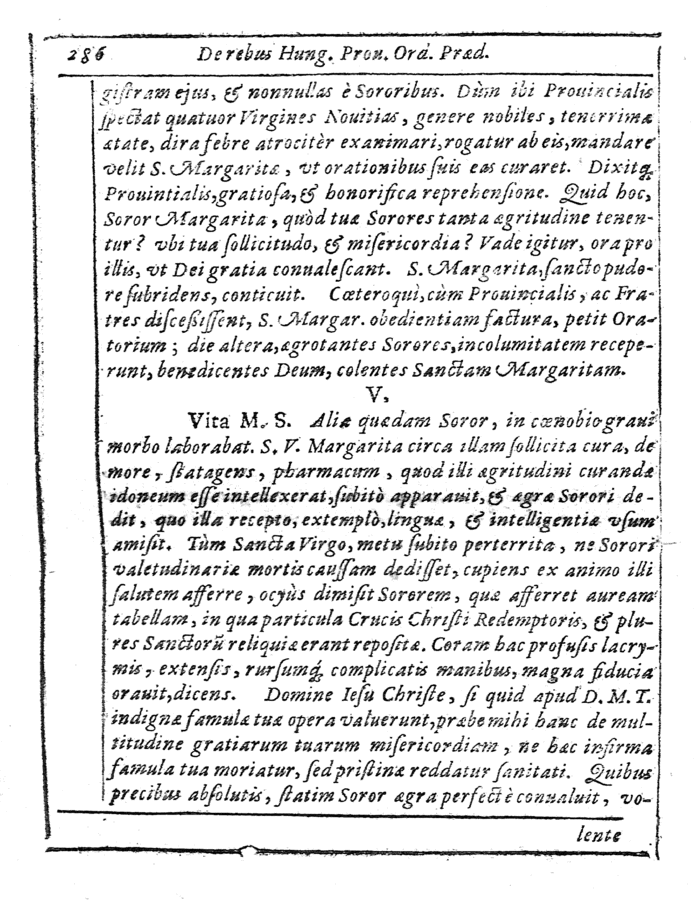 286 De rebus Hung. Prou. Ord. Præd.
giſtram ejus, & nonnullas è Sororibus. Dùm ibi Prouincialis
ſpectat quatuor Virgines Nouitias, genere nobiles, tenerrima
ætate, dira febre atrocitèr exanimari, rogatur ab eis, mandare
velit S. Margaritæ, vt orationibus ſuis eas curaret. Dixitq́;
Prouintialis, gratioſa, & honorifica reprehenſione. Quid hoc,
Soror Margarita, quòd tuæ Sorores tanta ægritudine tenen-
tur? vbi tua ſollicitudo, & miſericordia? Vade igitur, ora pro
illis, vt Dei gratia conualeſcant. S. Margarita, ſancto pudo-
re ſubridens, conticuit. Cæteroquì, cùm Prouincialis, ac Fra-
tres diſceſſiſſent, S. Margar. obedientiam factura, petit Ora-
torium; die altera, ægrotantes Sorores, incolumitatem recepe-
runt, benedicentes Deum, colentes Sanctam Margaritam.
V.
Vita M. S. Alia quædam Soror, in cœnobio graui
morbo laborabat. S. V. Margarita circa illam ſollicita cura, de
more, ſtatagens, pharmacum, quod illi ægritudini curandæ
idoneum eſſe intellexerat, ſubitò apparauit, & ægræ Sorori de-
dit, quo illa recepto, extemplò, linguæ, & intelligentiæ vſum
amiſit. Tùm Sancta Virgo, metu ſubito perterrita, ne Sorori
valetudinariæ mortis cauſſam dediſſet, cupiens ex animo illi
ſalutem afferre, ocyùs dimiſit Sororem, quæ afferret auream
tabellam, in qua particula Crucis Chriſti Redemptoris, & plu-
res Sanctorũ reliquiæ erant repoſitæ. Coram hac profuſis lacry-
mis, extenſis, rurſumq́; complicatis manibus, magna fiducia
orauit, dicens. Domine Ieſu Chriſte, ſi quid apud D. M. T.
indignæ famulæ tuæ opera valuerunt, præbe mihi hanc de mul-
titudine gratiarum tuarum miſericordiam, ne hæc infirma
famula tua moriatur, ſed priſtinæ reddatur ſanitati. Quibus
precibus abſolutis, ſtatim Soror ægra perfectè conualuit, vo-
lente